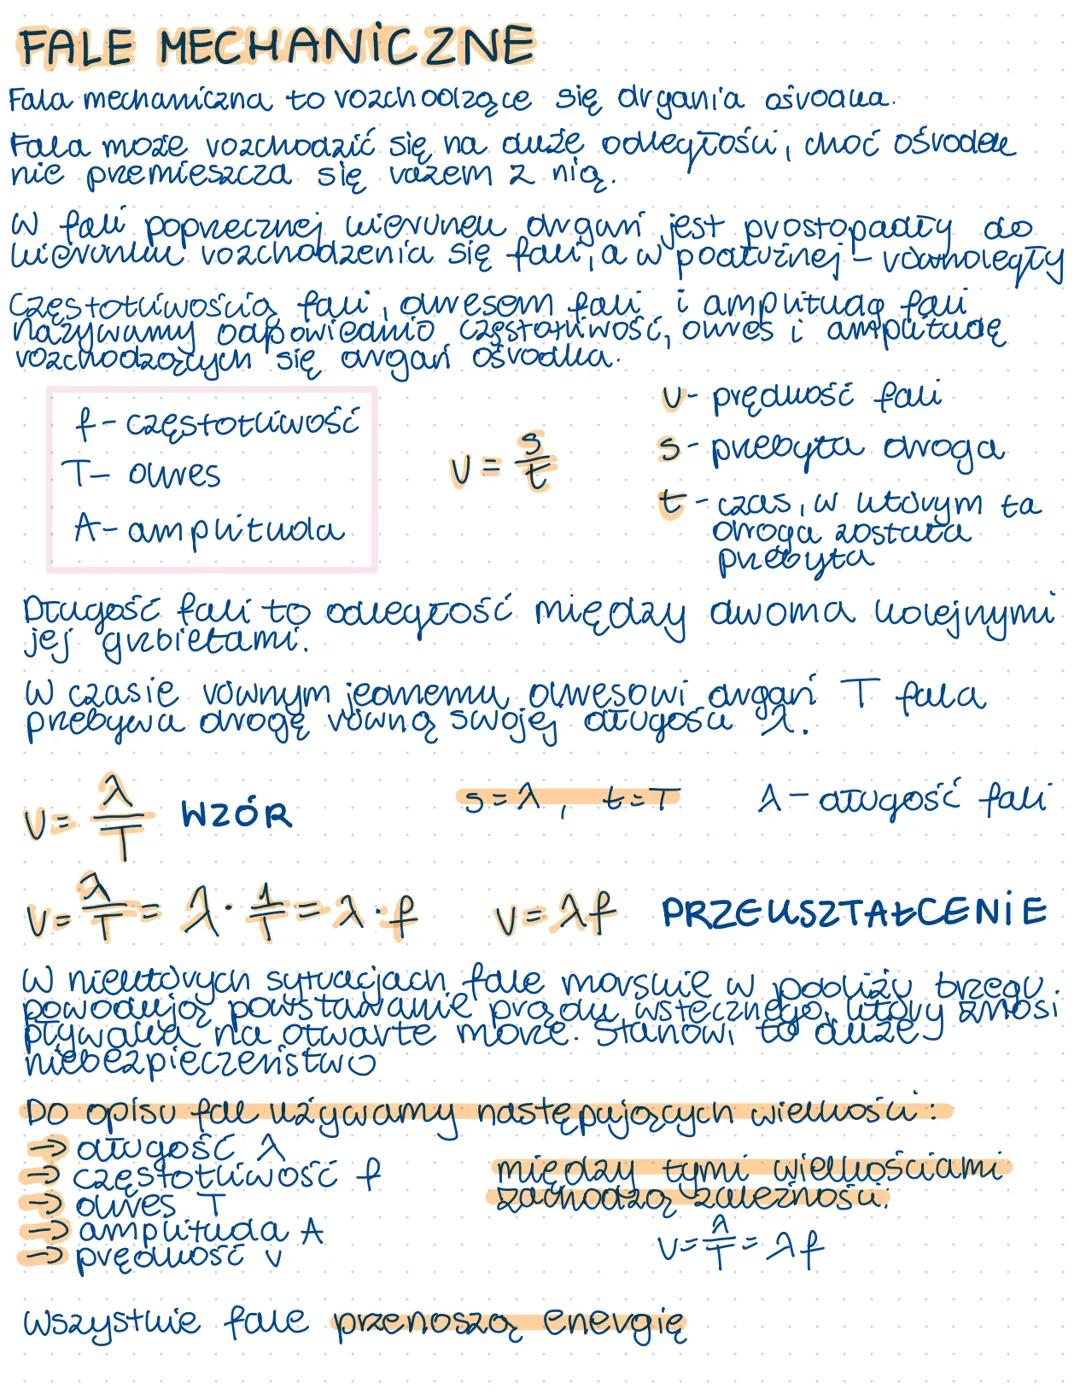 FALE MECHANICZNE
Fala mechaniczna to rozchodzące się drgania ośrodka.
Fala może rozchodzić się na duże odległości, choć ośrodek
nie przemieszcza się razem z nią.
W fali poprzecznej kierunek drgań jest prostopadły do
kierunku rozchodzenia się fali, a w podłużnej - równoległy
Częstotliwością fali, okresem fali i amplitudą fali
nazywamy odpowiednio częstotliwość, okres i amplitudę
rozchodzących się drgań ośrodka.
f - częstotliwość
T - okres
A - amplituda
v = s/t
v - prędkość fali
s - przebyta droga
t - czas, w którym ta
droga została
przebyta
Długość fali to odległość między dwoma kolejnymi
jej grzbietami.
W czasie równym jednemu okresowi drgań T fala
przebywa drogę równą swojej długości λ.
v = λ/T WZÓR
s = λ, t = T
λ - długość fali
v = λ/T = λ · 1/T = λ · f v = λf PRZEKSZTAŁCENIE
W niektórych sytuacjach fale morskie w pobliżu brzegu.
powodują powstawanie prądu wstecznego, który znosi
pływaka na otwarte morze. Stanowi to duże
niebezpieczeństwo
Do opisu fal używamy następujących wielkości:
→ długość λ
→ częstotliwość f
→ okres T
→ amplituda A
→ prędkość v
między tymi wielkościami
zachodzą zależności:
v = λ/T = λf
Wszystkie fale przenoszą energię